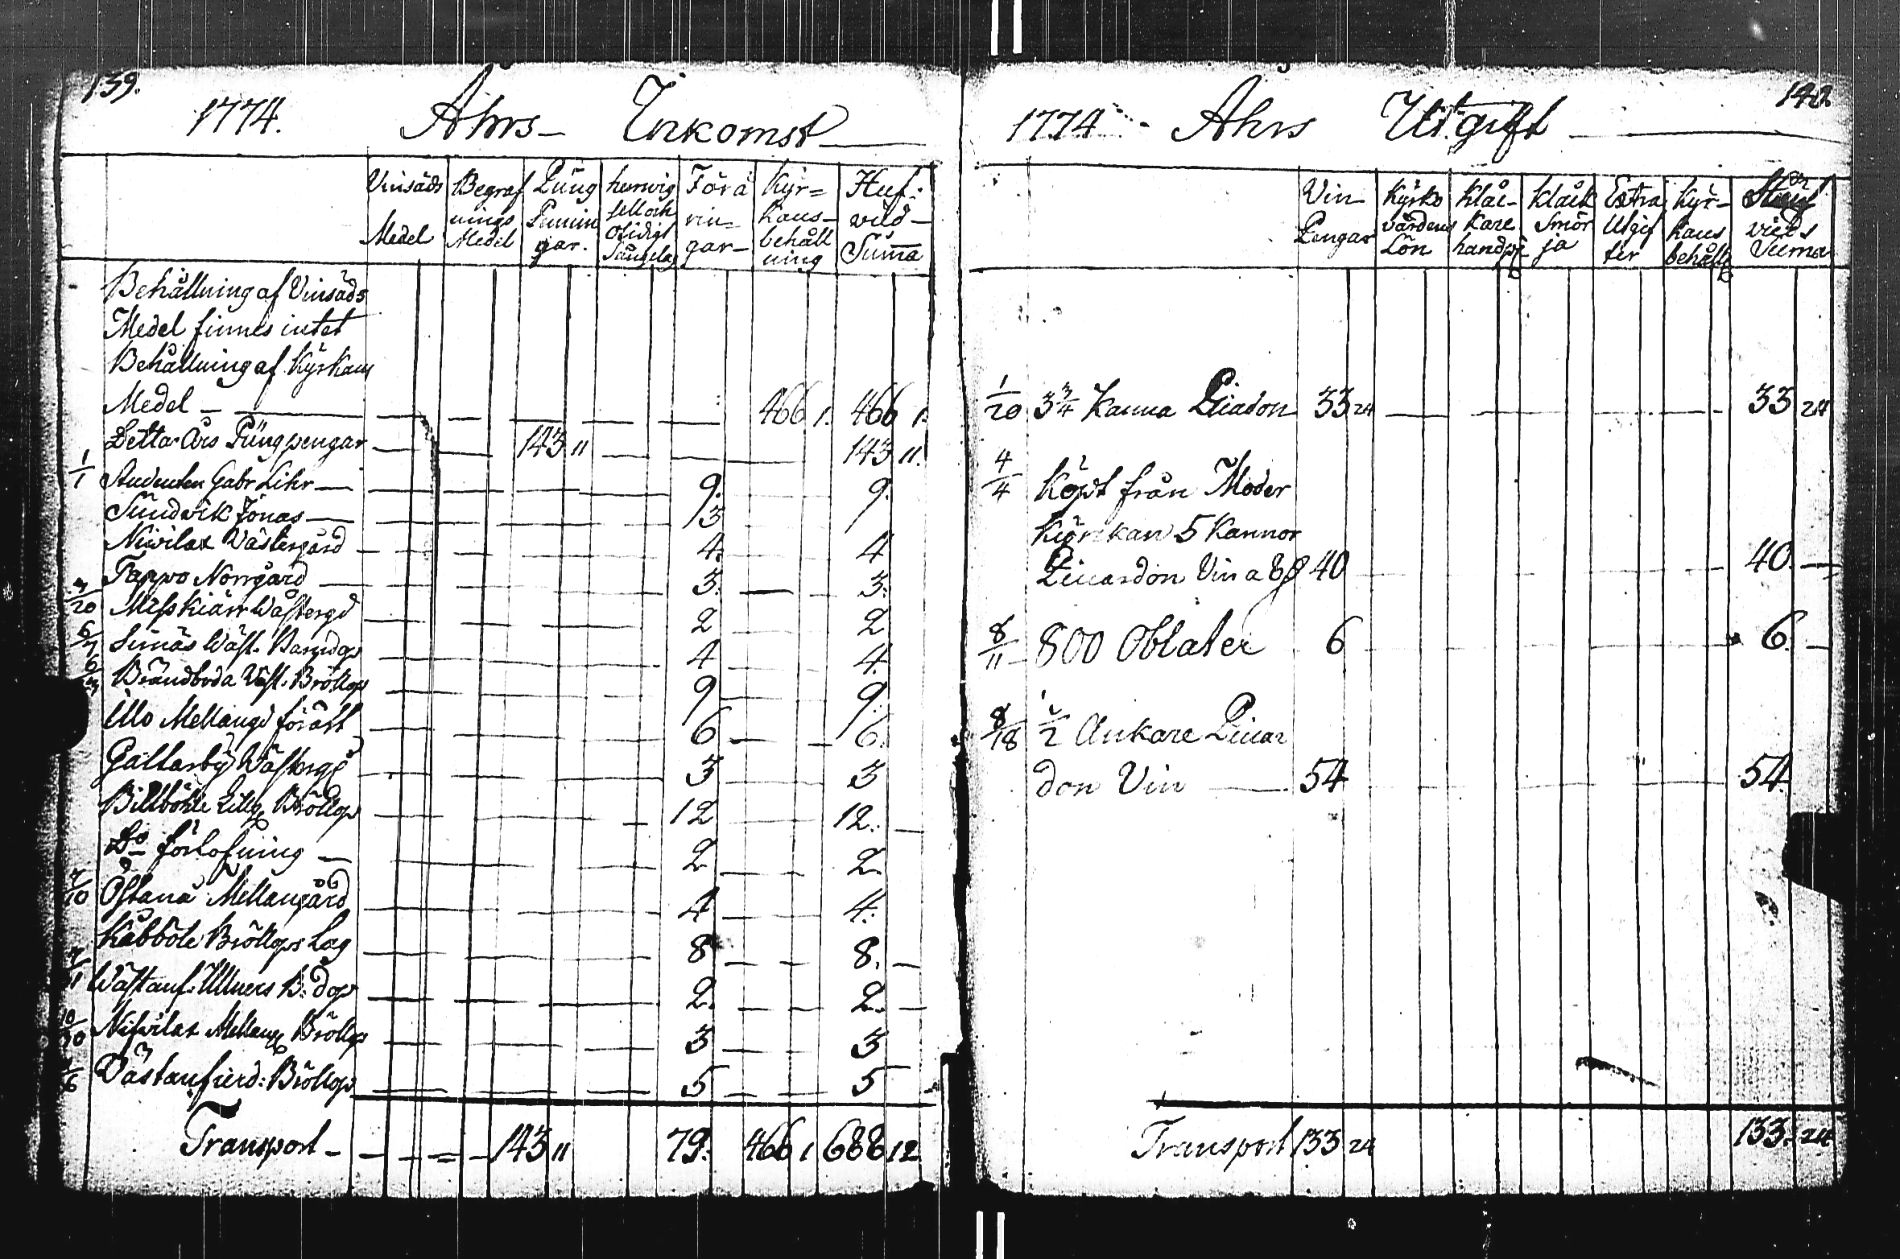 139.
1774. Åhrs Inkomst
Vinsäds Medel
Begraf nings Medel
Pung Pennin gar.
Föräringar
Kyrkans behållning
Hufvud Summa
Behållning af Vinsäds
Medel finnes intet
Behållning af Kyrkans
Medel 466 1. 466 1.
Detta Års Pungpengar 143 11 143 11.
1/1 Studenten Gabr Lihr 9. 9.
Sundvik Jonas 3
Nivilax Västergård 4. 4
Tappo Norrgård 3. 3.
Misskiärr Wästergd 2 2
6/7 Simäs Wäst. Barndop 4 4.
Brändboda Wäst. Bröllop 9 9.
Ullo Mellangd förärt 6 6.
Galtarby Västergd 3 3
Billböhle Lillg Bröllop 12 12.
Do förlofning 2 2
Östanå Mellangård 4 4.
Kåbböle Bröllops Lag 8 8.
Wästanf. Ullners B. dop 2. 2.
Nivilax Mellang Bröllop 3 3
Västanfierd: Bröllop 5 5
Transport 143 11 79. 466 1 688 12
140.
1774 Åhrs Utgift
Vin Pengar
Kyrko värdens Lön
Klåc- kare
Klåck Smör ja
Extra Utgif ter
Kyr- kans behålln
Hufvuds Summa
1/20 3 3/4 Kanna 33 24 33 24
4/4 Köpt från Moder
Kyrkan 5 Kannor
Picardon Vin a 8 40 40.
8/11 800 Oblater 6 6.
8/18 1/2 Ankare Picar
don Vin 54 54.
Transport 133 24 133. 24